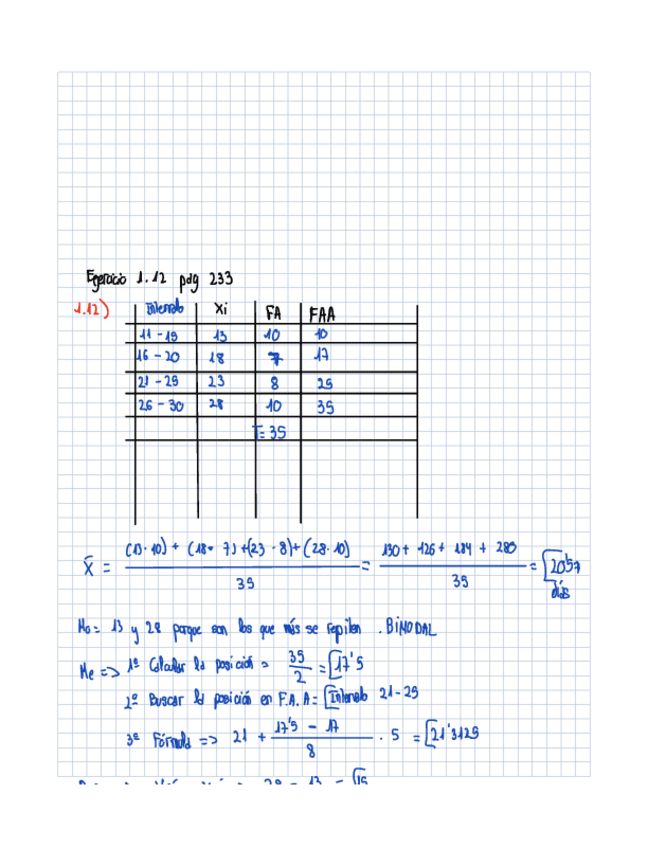 Ejercicio 1.12 pág 233
1.12)
Intervalo Xi FA FAA
11 - 15 13 10 10
16 - 20 18 7 17
21 - 25 23 8 25
26 - 30 28 10 35
T= 35
X̄ = (13·10) + (18· 7) + (23 · 8) + (28·10) / 35 = 130 + 126 + 184 + 280 / 35 = 20'57 días
Mo = 13 y 28 porque son los que más se repiten . BIMODAL
Me => 1º Calcular la posición = 35 / 2 = 17'5
2º Buscar la posición en F.A.A = Intervalo 21-25
3º Fórmula => 21 + 17'5 - 17 / 8 · 5 = 21'3125
28 - 13 = 15